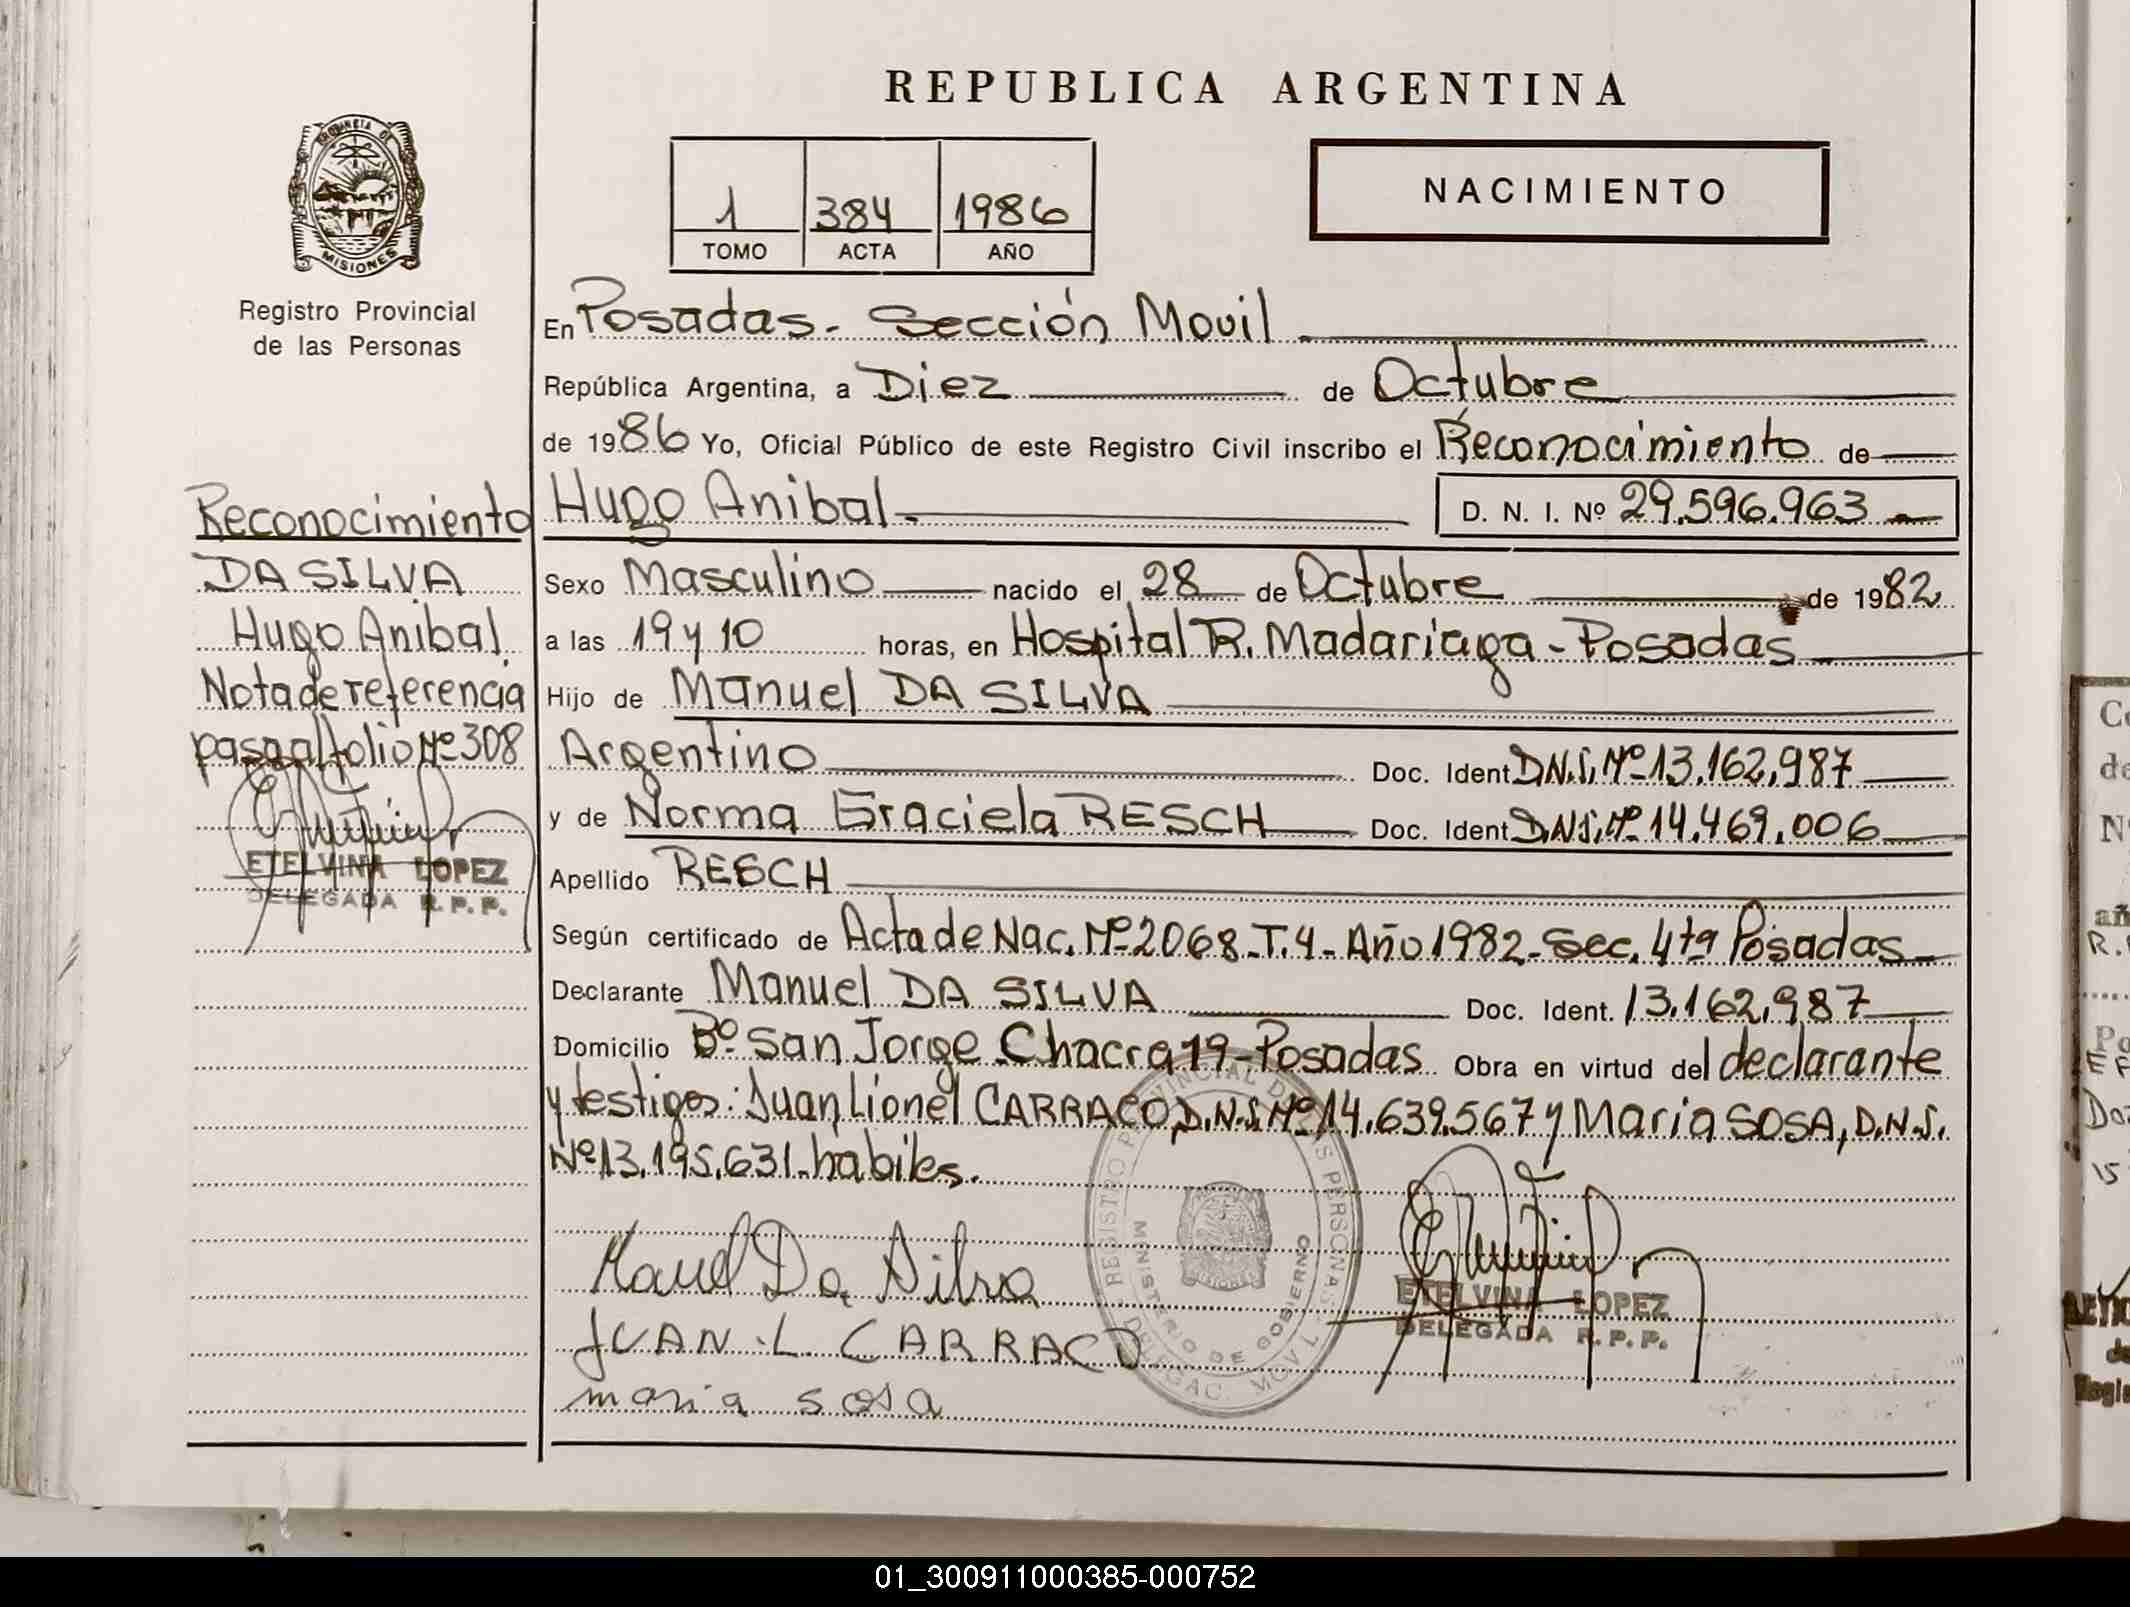 REPUBLICA ARGENTINA
PROVINCIA DE MISIONES
Registro Provincial
de las Personas
1 384 1986
TOMO ACTA AÑO
NACIMIENTO
En Posadas.- Sección Movil
República Argentina, a Diez de Octubre
de 1986 Yo, Oficial Público de este Registro Civil inscribo el Reconocimiento de
Hugo Anibal.- D. N. I. Nº 29.596.963
Sexo Masculino nacido el 28 de Octubre de 1982
a las 19 y 10 horas, en Hospital R. Madariaga - Posadas
Hijo de Manuel DA SILVA
Argentino Doc. Ident D.N.I. Nº 13.162.987
y de Norma Graciela RESCH Doc. Ident D.N.I. Nº 14.469.006
Apellido RESCH
Según certificado de Acta de Nac. Nº 2068-T.4-Año 1982-Sec. 4ta Posadas
Declarante Manuel DA SILVA Doc. Ident. 13.162.987
Domicilio Bº San Jorge Chacra 19-Posadas Obra en virtud del declarante
y testigos: Juan Lionel CARRACO, D.N.I. Nº 14.639.567 y Maria SOSA, D.N.I.
Nº 13.195.631.-habiles.
Manuel Da Silva
JUAN.L. CARRACO
maria sosa
REGISTRO PROVINCIAL DE LAS PERSONAS
MINISTERIO DE GOBIERNO
DELEGAC. MOVIL
ETELVINA LOPEZ
DELEGADA R.P.P.
Reconocimiento
DA SILVA
Hugo Anibal
Nota de referencia
pasa al folio Nº 308
ETELVINA LOPEZ
DELEGADA R.P.P.
01_300911000385-000752